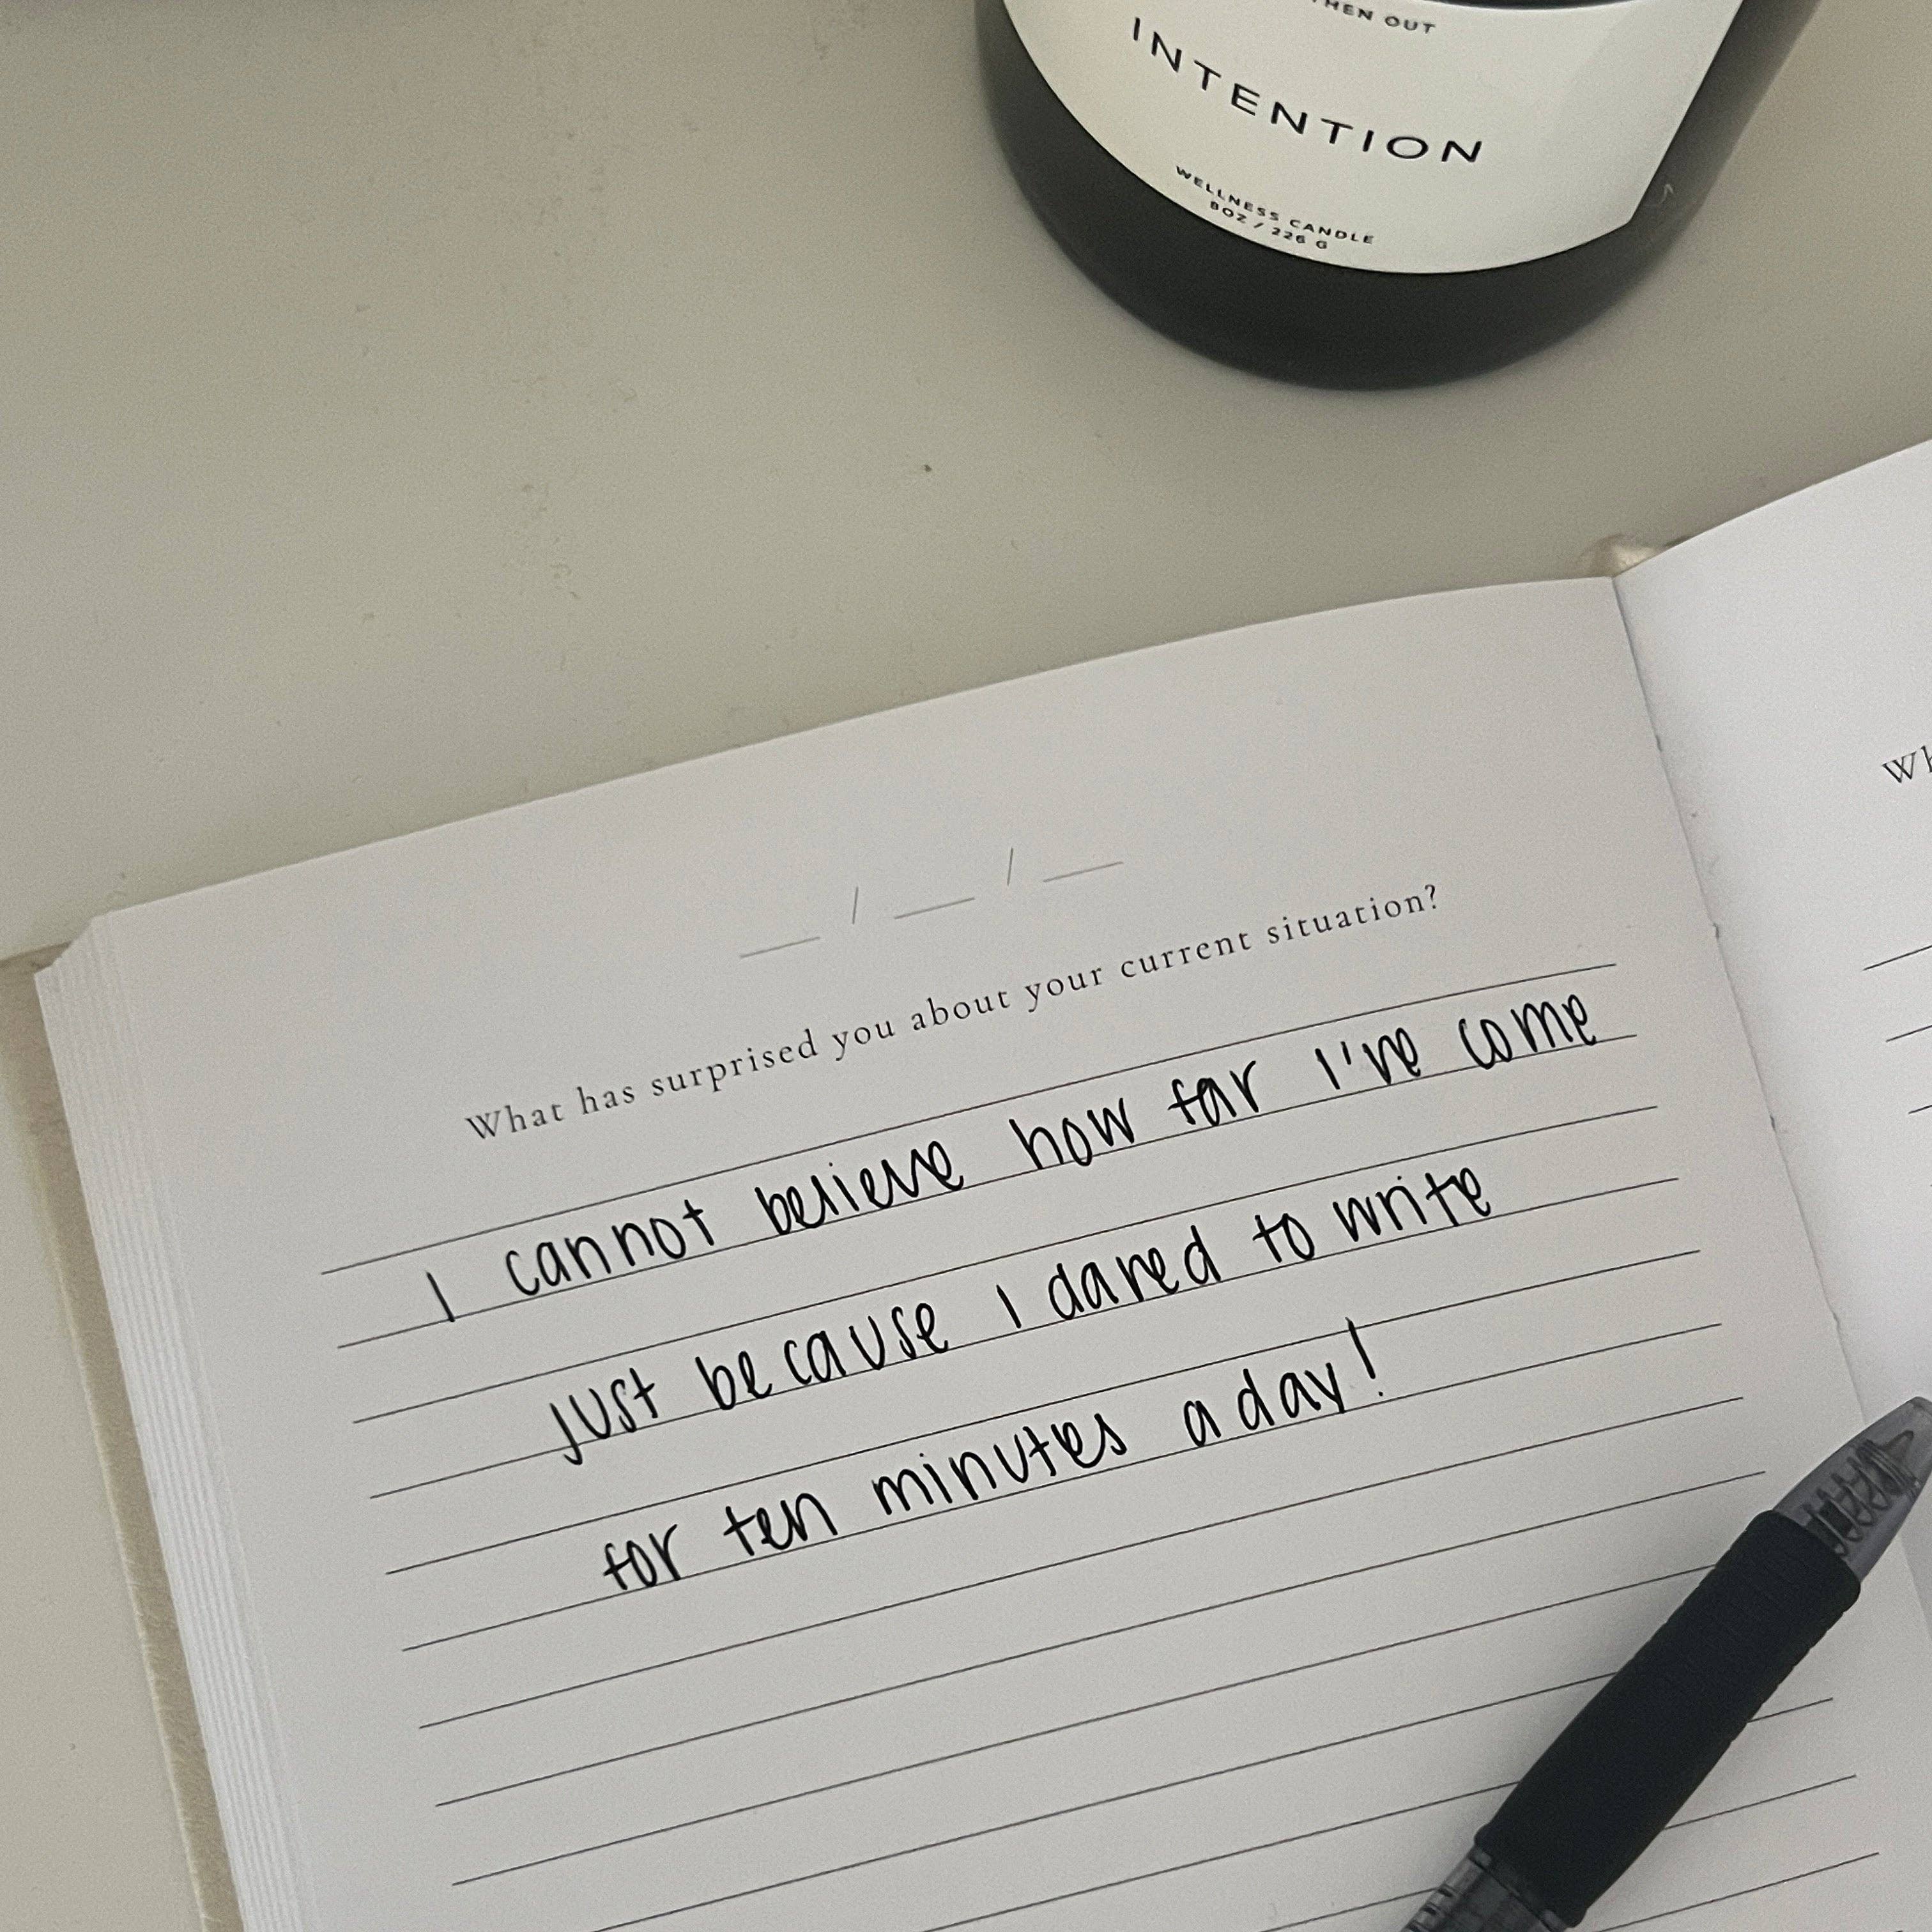 THEN OUT
INTENTION
WELLNESS CANDLE
8OZ / 226 G
__ / __ / __
What has surprised you about your current situation?
I cannot believe how far I've come
just because I dared to write
for ten minutes a day!